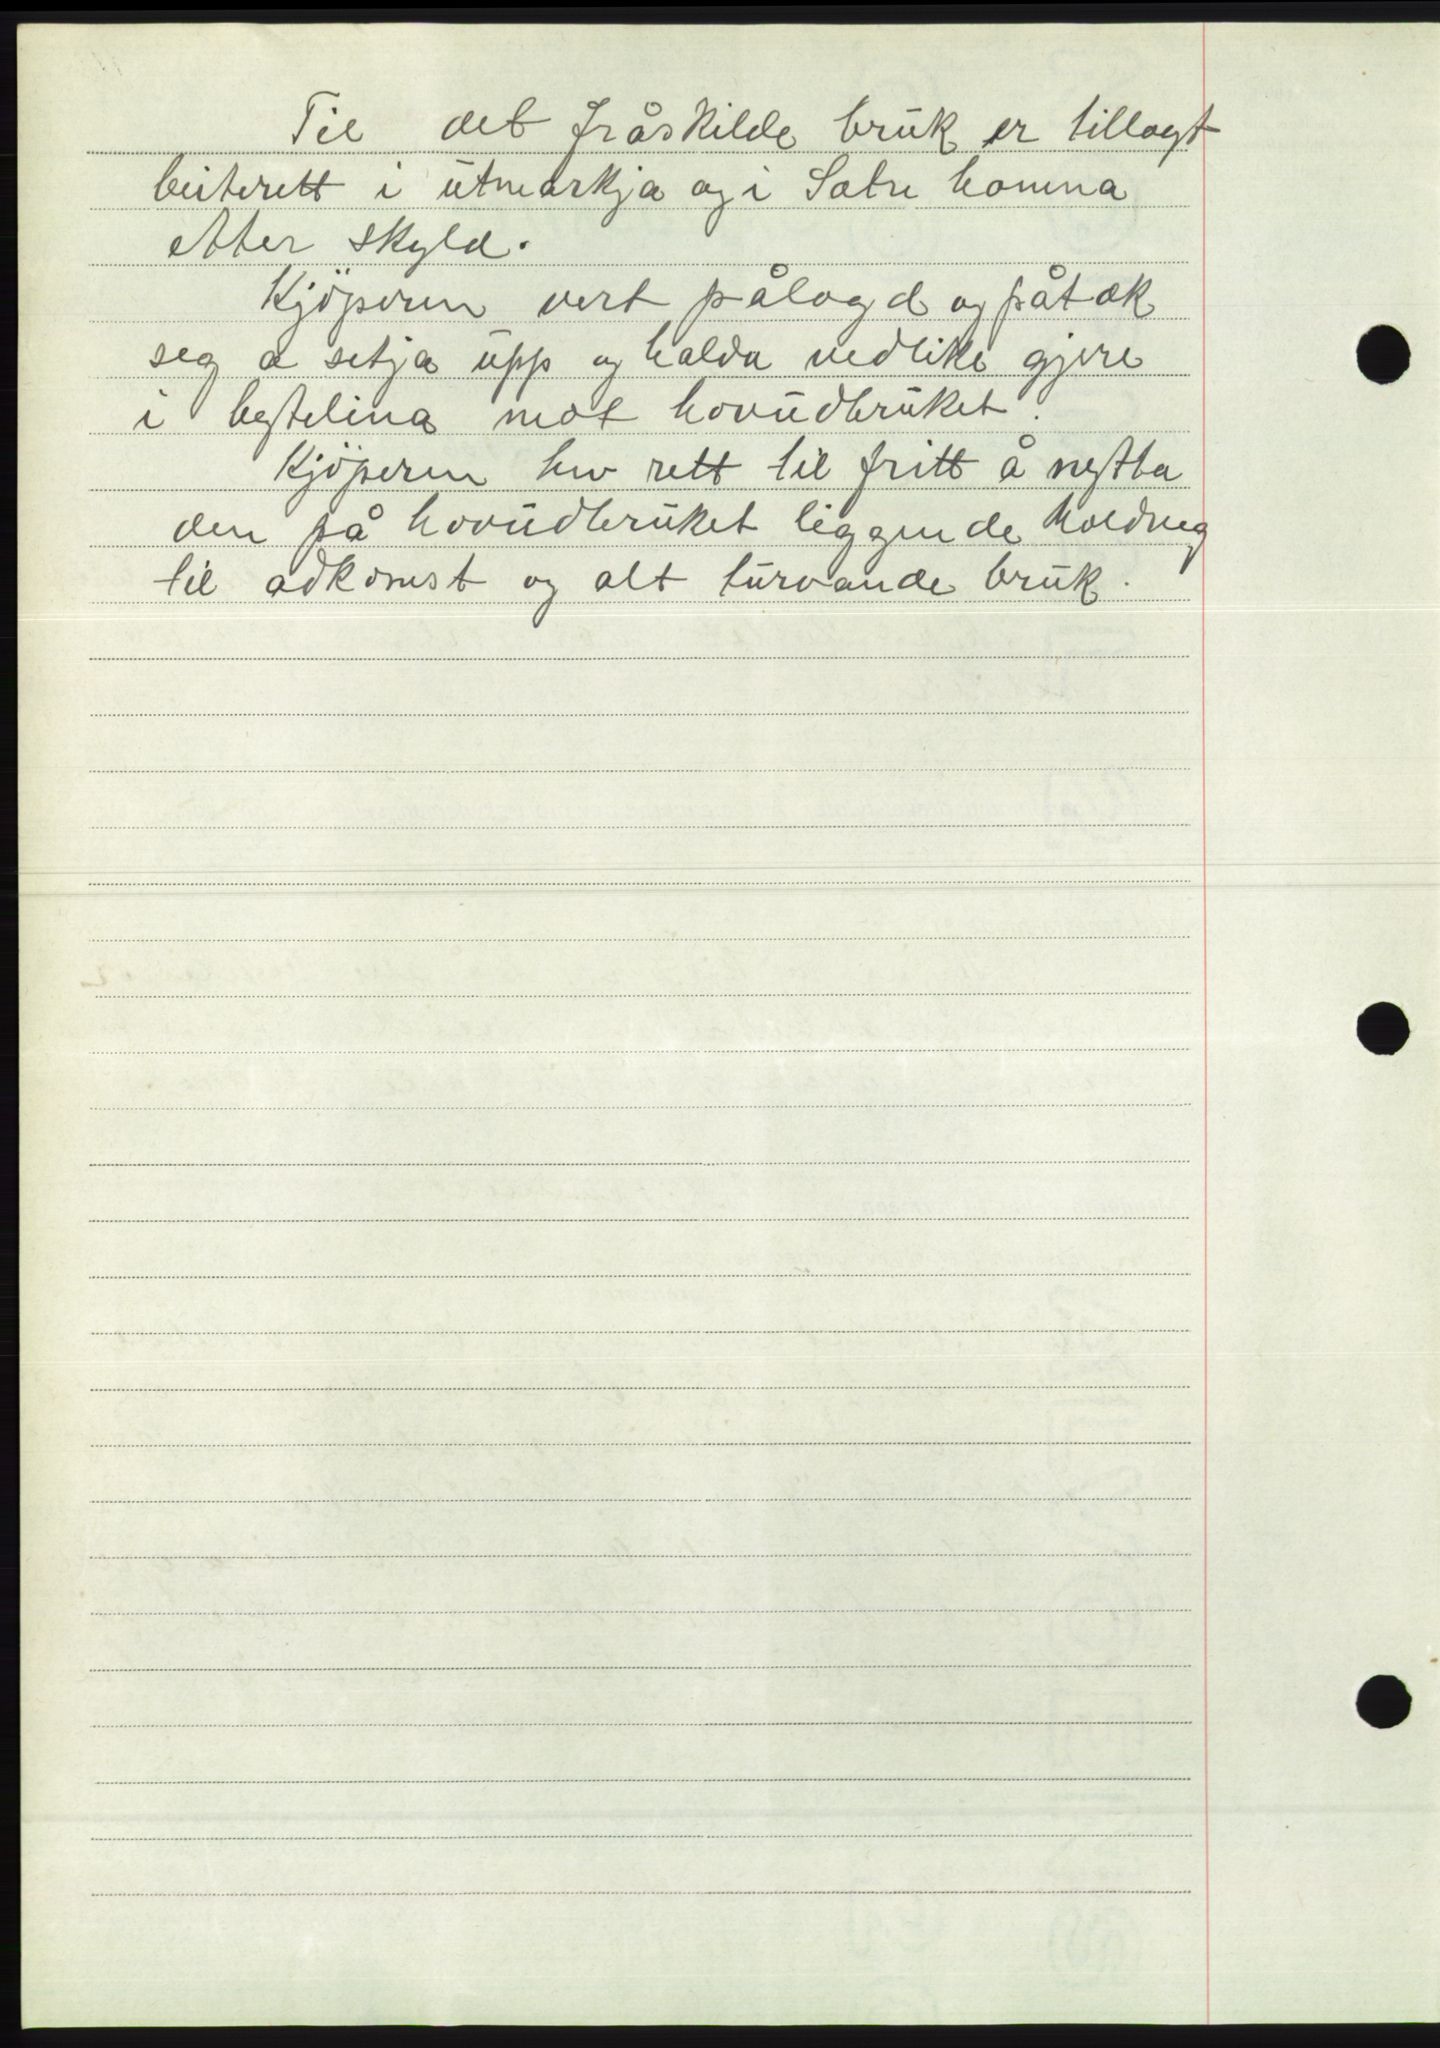 Til det fråskilde bruk er tillagt
beiterett i utmarkja og i Sætre hamna
etter skyld.
Kjöperen vert pålagd og påtæk
seg a setja upp og halda vedlike gjere
i bytelina mot hovudbruket.
Kjöperen hev rett til fritt å nytta
den på hovudbruket liggende
til adkomst og alt turvande bruk.